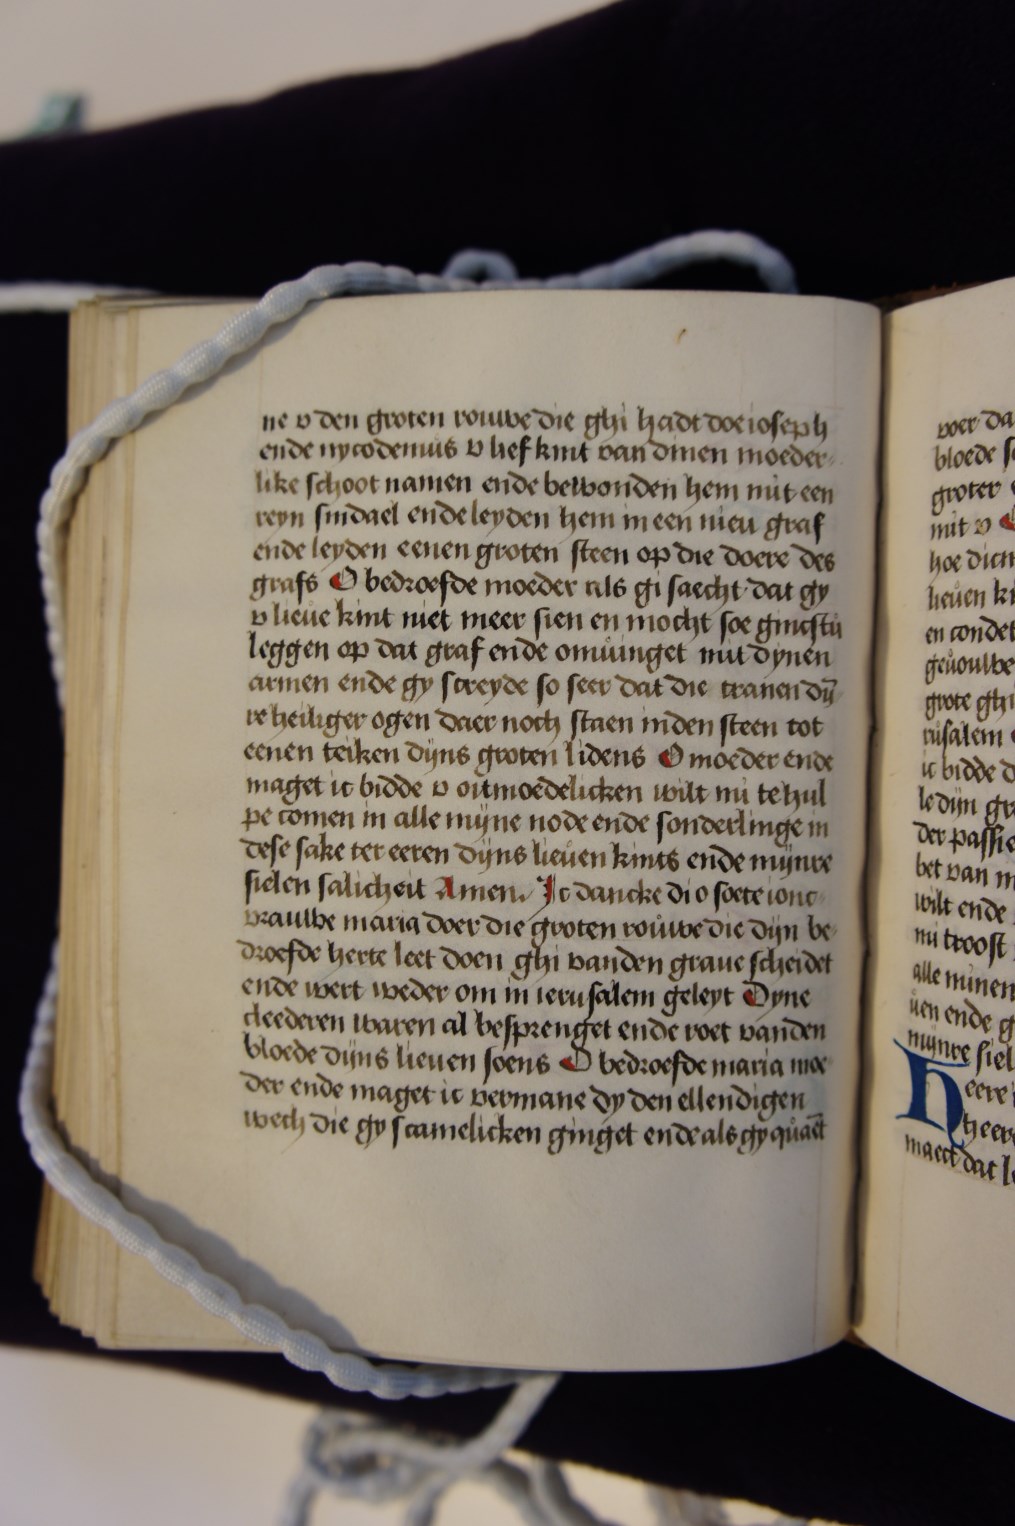 ne v den groten rouwe die ghi hadt doe ioseph
ende nycodemus v lief kint van dinen moeder-
like schoot namen ende bewonden hem mit een
reyn sindael ende leyden hem in een nieu graf
ende leyden eenen groten steen op die doere des
grafs O bedroefde moeder als gi saecht dat gy
v lieue kint niet meer sien en mocht soe gincstu
leggen op dat graf ende omuinget mit dynen
armen ende gy screyde so seer dat die tranen dÿ-
re heiliger ogen daer noch staen in den steen tot
eenen teiken dijns groten lidens O moeder ende
maget ic bidde v oitmoedelicken wilt nu te hul
pe comen in alle mijne node ende sonderlinge in
dese sake ter eeren dijns lieuen kints ende mijnre
sielen salicheit Amen. Ic dancke di o soete ionc-
vrauwe maria doer die groten rouwe die dijn be-
droefde herte leet doen ghi vanden graue scheidet
ende wert weder om in ierusalem geleyt Dyne
cleederen waren al besprenget ende roet vanden
bloede dijns lieuen soens O bedroefde maria moe
der ende maget ic vermane dy den ellendigen
wech die gy scamelicken ginget ende als gy quaēt
voer da
bloede
groter
mit v
hoe dic
lieuen
en
geuoulbe
grote ghi
rusalem
ic bidde
le dijn
der passie
bet van
wilt ende
mi troost
alle minen
uen ende
mijnre siel
Heere
heere
maect dat